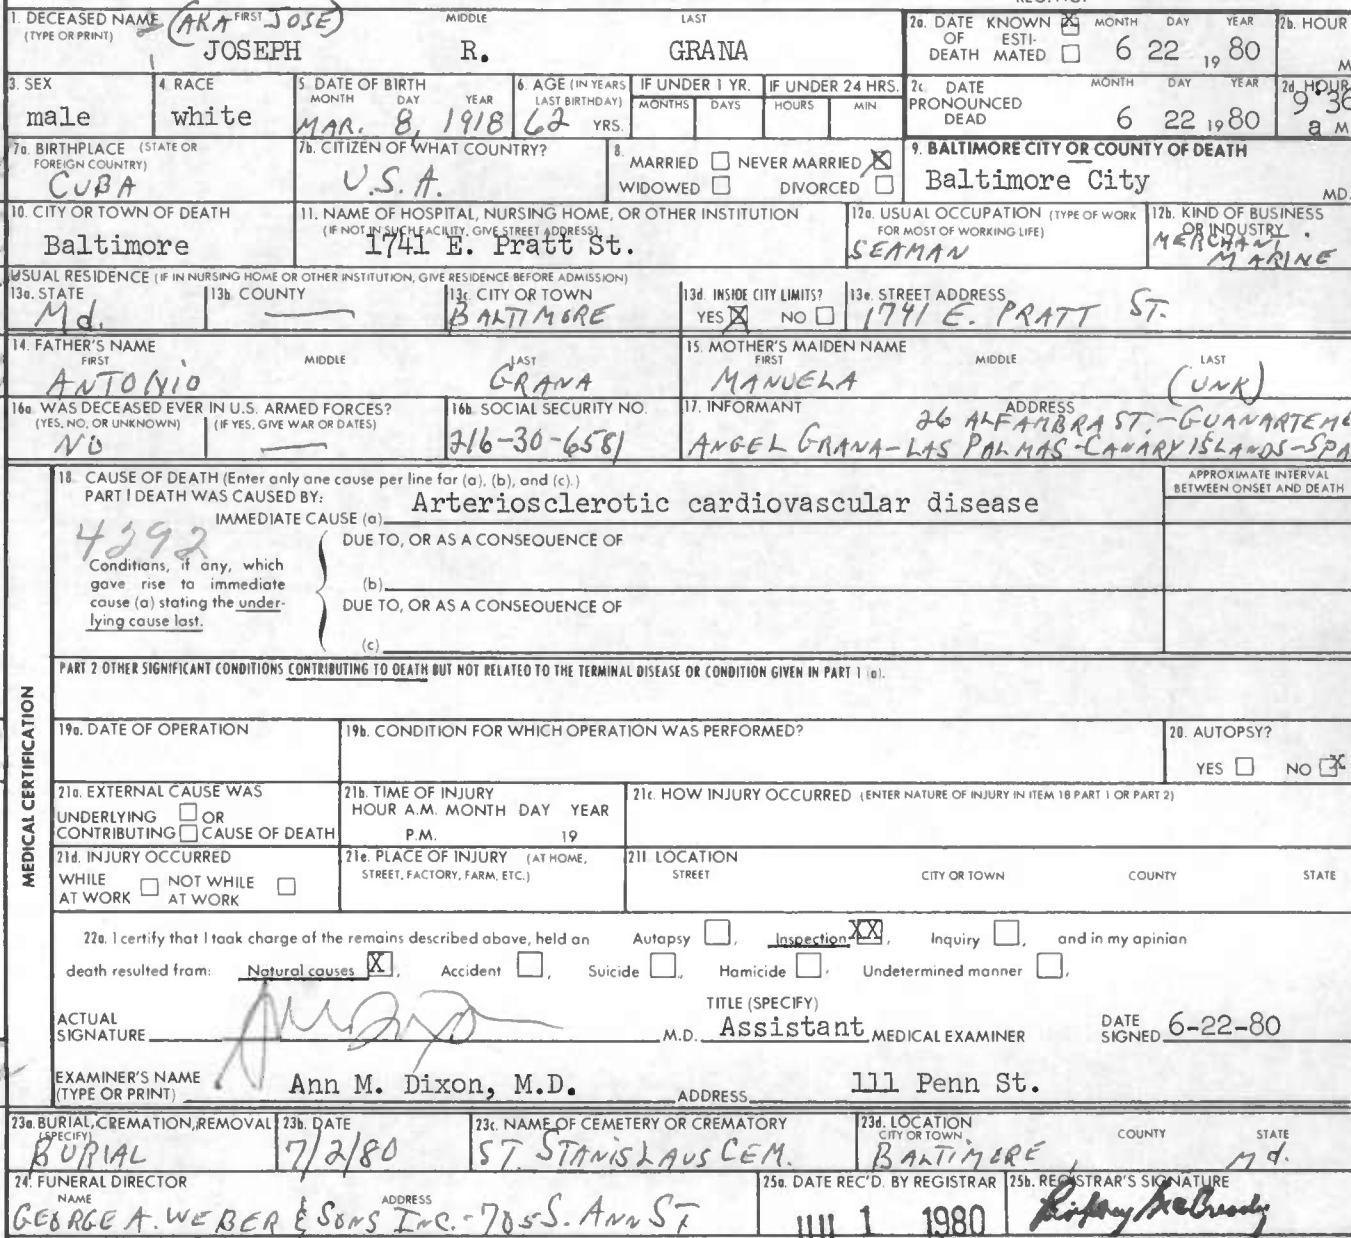 1. DECEASED NAME (TYPE OR PRINT) FIRST MIDDLE LAST
(AKA JOSE)
JOSEPH R. GRANA
2a. DATE OF DEATH KNOWN X ESTIMATED MONTH DAY YEAR 6 22 19 80
2b. HOUR M
3. SEX male
4. RACE white
5. DATE OF BIRTH MONTH DAY YEAR MAR. 8, 1918
6. AGE (IN YEARS LAST BIRTHDAY) 62 YRS.
IF UNDER 1 YR. MONTHS DAYS
IF UNDER 24 HRS. HOURS MIN
2c. DATE PRONOUNCED DEAD MONTH DAY YEAR 6 22 19 80
2d. HOUR 9:36 a M
7a. BIRTHPLACE (STATE OR FOREIGN COUNTRY) CUBA
7b. CITIZEN OF WHAT COUNTRY? U.S.A.
8. MARRIED NEVER MARRIED X WIDOWED DIVORCED
9. BALTIMORE CITY OR COUNTY OF DEATH Baltimore City MD.
10. CITY OR TOWN OF DEATH Baltimore
11. NAME OF HOSPITAL, NURSING HOME, OR OTHER INSTITUTION (IF NOT IN SUCH FACILITY, GIVE STREET ADDRESS) 1741 E. Pratt St.
12a. USUAL OCCUPATION (TYPE OF WORK FOR MOST OF WORKING LIFE) SEAMAN
12b. KIND OF BUSINESS OR INDUSTRY MERCHANT MARINE
USUAL RESIDENCE (IF IN NURSING HOME OR OTHER INSTITUTION, GIVE RESIDENCE BEFORE ADMISSION)
13a. STATE Md.
13b. COUNTY —
13c. CITY OR TOWN BALTIMORE
13d. INSIDE CITY LIMITS? YES X NO
13e. STREET ADDRESS 1741 E. PRATT ST.
14. FATHER'S NAME FIRST MIDDLE LAST ANTONIO GRANA
15. MOTHER'S MAIDEN NAME FIRST MIDDLE LAST MANUELA (UNK)
16a. WAS DECEASED EVER IN U.S. ARMED FORCES? (YES, NO, OR UNKNOWN) (IF YES, GIVE WAR OR DATES) NO —
16b. SOCIAL SECURITY NO. 216-30-6581
17. INFORMANT ADDRESS 26 ALFAMBRA ST.-GUANARTEME
ANGEL GRANA-LAS PALMAS-CANARY ISLANDS-SPA
MEDICAL CERTIFICATION
18. CAUSE OF DEATH (Enter only one cause per line for (a), (b), and (c).)
PART I DEATH WAS CAUSED BY:
IMMEDIATE CAUSE (a) Arteriosclerotic cardiovascular disease
APPROXIMATE INTERVAL BETWEEN ONSET AND DEATH
4292
Conditions, if any, which gave rise to immediate cause (a) stating the underlying cause last.
DUE TO, OR AS A CONSEQUENCE OF
(b)
DUE TO, OR AS A CONSEQUENCE OF
(c)
PART 2 OTHER SIGNIFICANT CONDITIONS CONTRIBUTING TO DEATH BUT NOT RELATED TO THE TERMINAL DISEASE OR CONDITION GIVEN IN PART 1 (a).
19a. DATE OF OPERATION
19b. CONDITION FOR WHICH OPERATION WAS PERFORMED?
20. AUTOPSY? YES NO X
21a. EXTERNAL CAUSE WAS UNDERLYING OR CONTRIBUTING CAUSE OF DEATH
21b. TIME OF INJURY HOUR A.M. MONTH DAY YEAR P.M. 19
21c. HOW INJURY OCCURRED (ENTER NATURE OF INJURY IN ITEM 18 PART 1 OR PART 2)
21d. INJURY OCCURRED WHILE AT WORK NOT WHILE AT WORK
21e. PLACE OF INJURY (AT HOME, STREET, FACTORY, FARM, ETC.)
21f. LOCATION STREET CITY OR TOWN COUNTY STATE
22a. I certify that I took charge of the remains described above, held an Autopsy , Inspection XX, Inquiry , and in my opinion
death resulted from: Natural causes X, Accident , Suicide , Homicide , Undetermined manner ,
ACTUAL SIGNATURE M.D. TITLE (SPECIFY) Assistant MEDICAL EXAMINER DATE SIGNED 6-22-80
EXAMINER'S NAME (TYPE OR PRINT) Ann M. Dixon, M.D. ADDRESS 111 Penn St.
23a. BURIAL, CREMATION, REMOVAL (SPECIFY) BURIAL
23b. DATE 7/2/80
23c. NAME OF CEMETERY OR CREMATORY ST. STANISLAUS CEM.
23d. LOCATION CITY OR TOWN COUNTY STATE BALTIMORE, Md.
24. FUNERAL DIRECTOR NAME ADDRESS GEORGE A. WEBER & SONS INC.-705 S. ANN ST
25a. DATE REC'D. BY REGISTRAR 1 1980
25b. REGISTRAR'S SIGNATURE